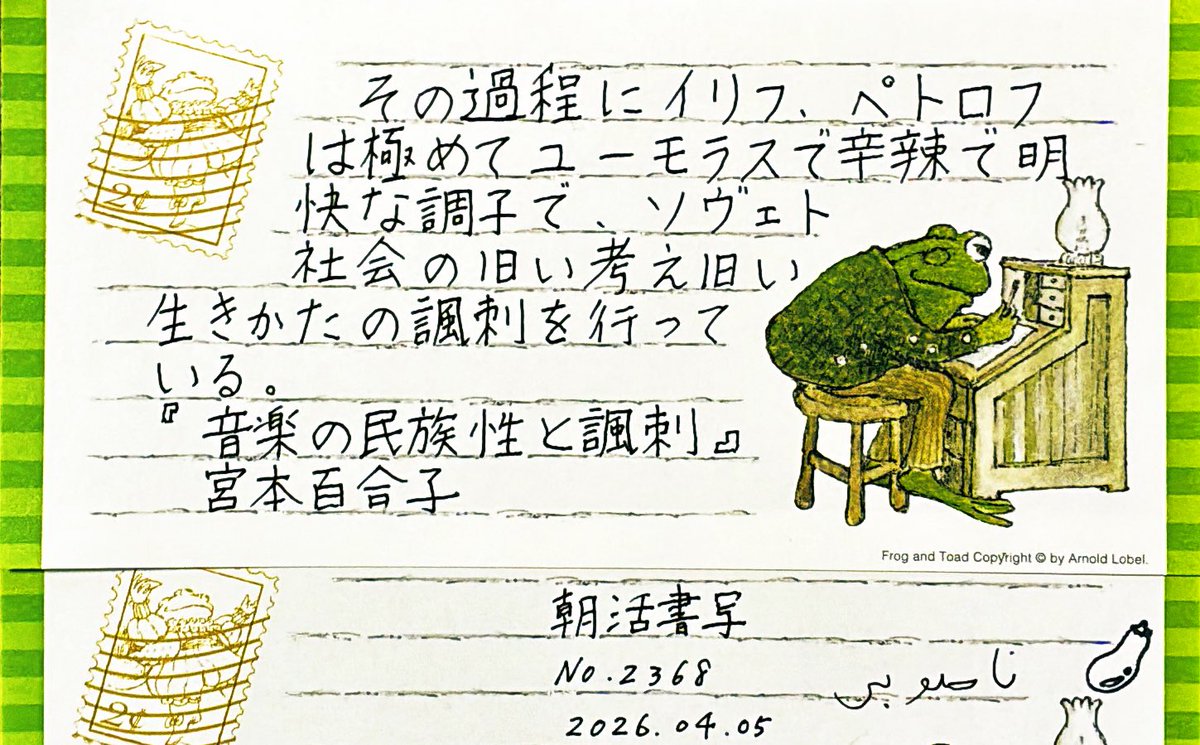 その過程にイリフ、ペトロフ
は極めてユーモラスで辛辣で明
快な調子で、ソヴェト
社会の旧い考え旧い
生きかたの諷刺を行って
いる。
『音楽の民族性と諷刺』
宮本百合子
2¢
Frog and Toad Copyright © by Arnold Lobel.
朝活書写
No.2368
2026.04.05
2¢